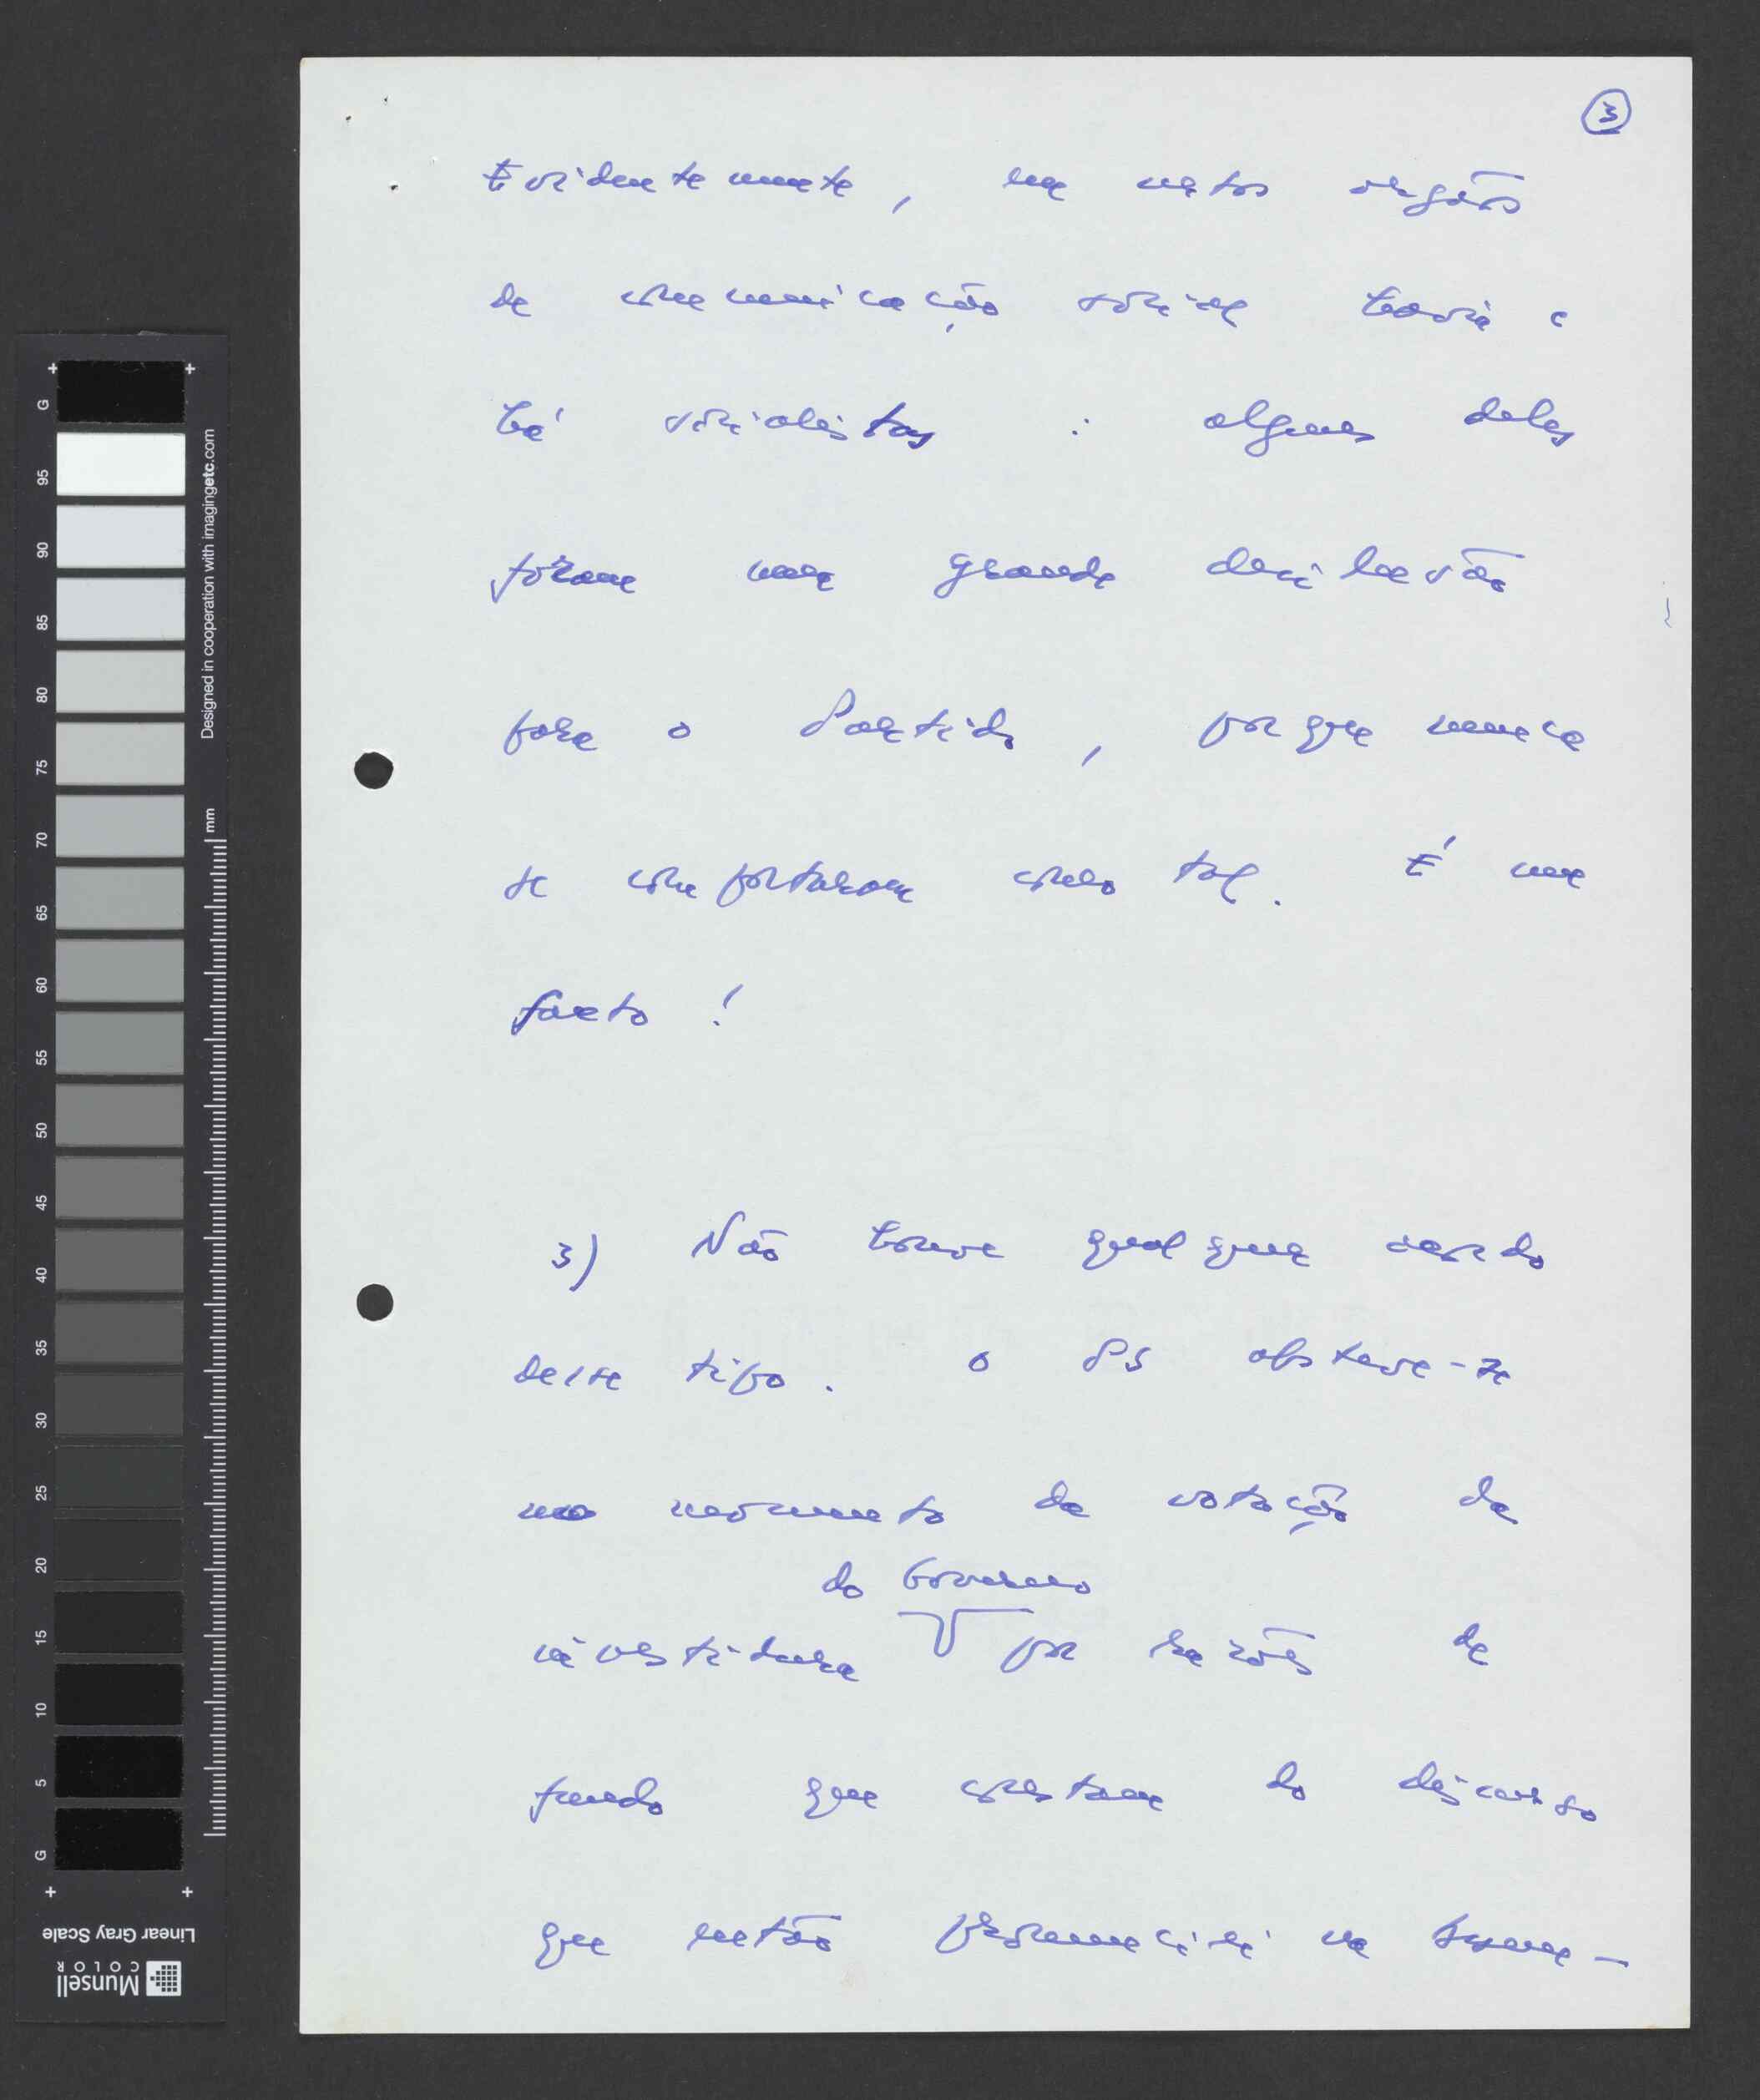 3
Evidentemente, em outros orgãos
de comunicação social havia e
há socialistas: alguns deles
foram uma grande desilusão
para o Partido, porque nunca
se comportaram como tal. É um
facto!
3) Não houve qualquer acordo
desse tipo. O PS absteve-se
no momento da votação da
do Governo
investidura por razões de
fundo que constam do discurso
que então pronunciei na Assem-
G
95
90
85
80
75
70
65
60
55
50
45
40
35
30
25
20
15
10
5
G
Designed in cooperation with imagingetc.com
mm
Linear Gray Scale
Munsell
COLOR